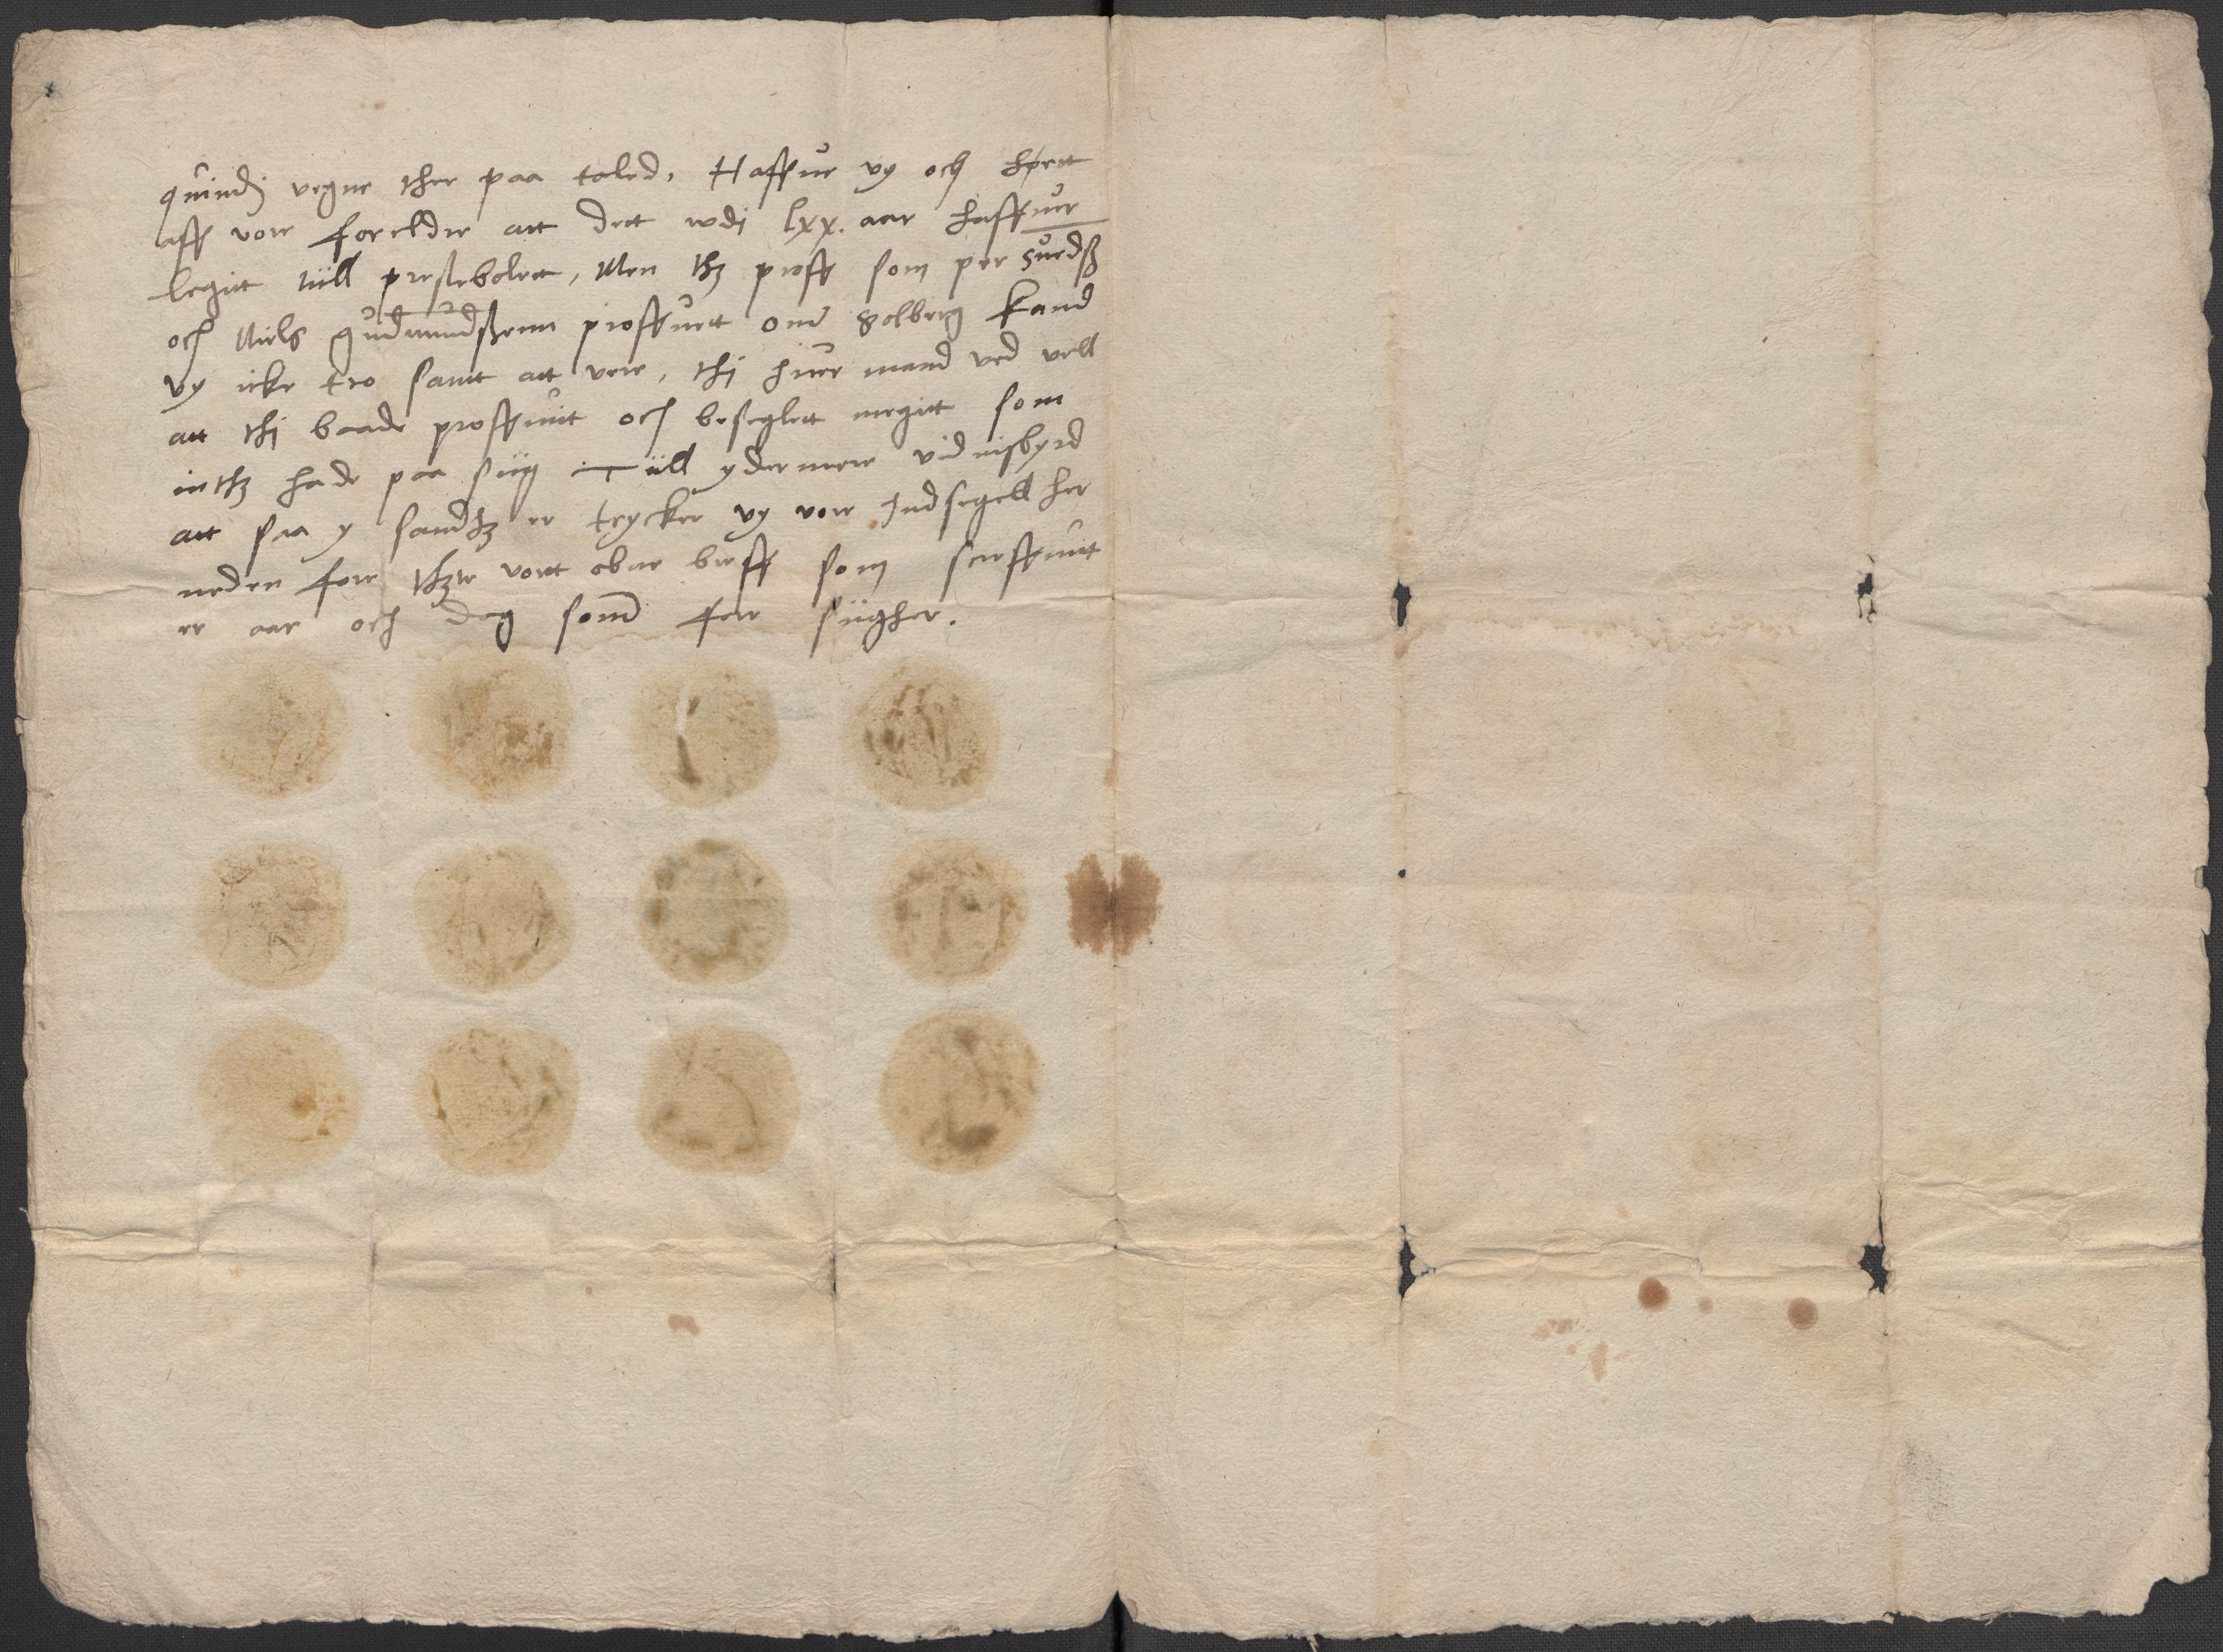 quindj vegne ther paa taled, Haffue vy och hørtt
aff vore foreldre att dett wdj lxx. aar haffuer
legitt tiill prestebolett, Men thz proff som per suedß
och Niels gudmundßenn proffuett om solberg kand
vy icke tro santt att vere, thj huer mand ved vell
att thj baade proffuitt och beseglett megitt som
inthz hade paa siig Tiill ydermere vidnisbyrd
att saa y sandhz er trycker vy vore Indsegell her
neden fore thzte vortt obne breff som screffuitt
er aar och dag som fore siigher.